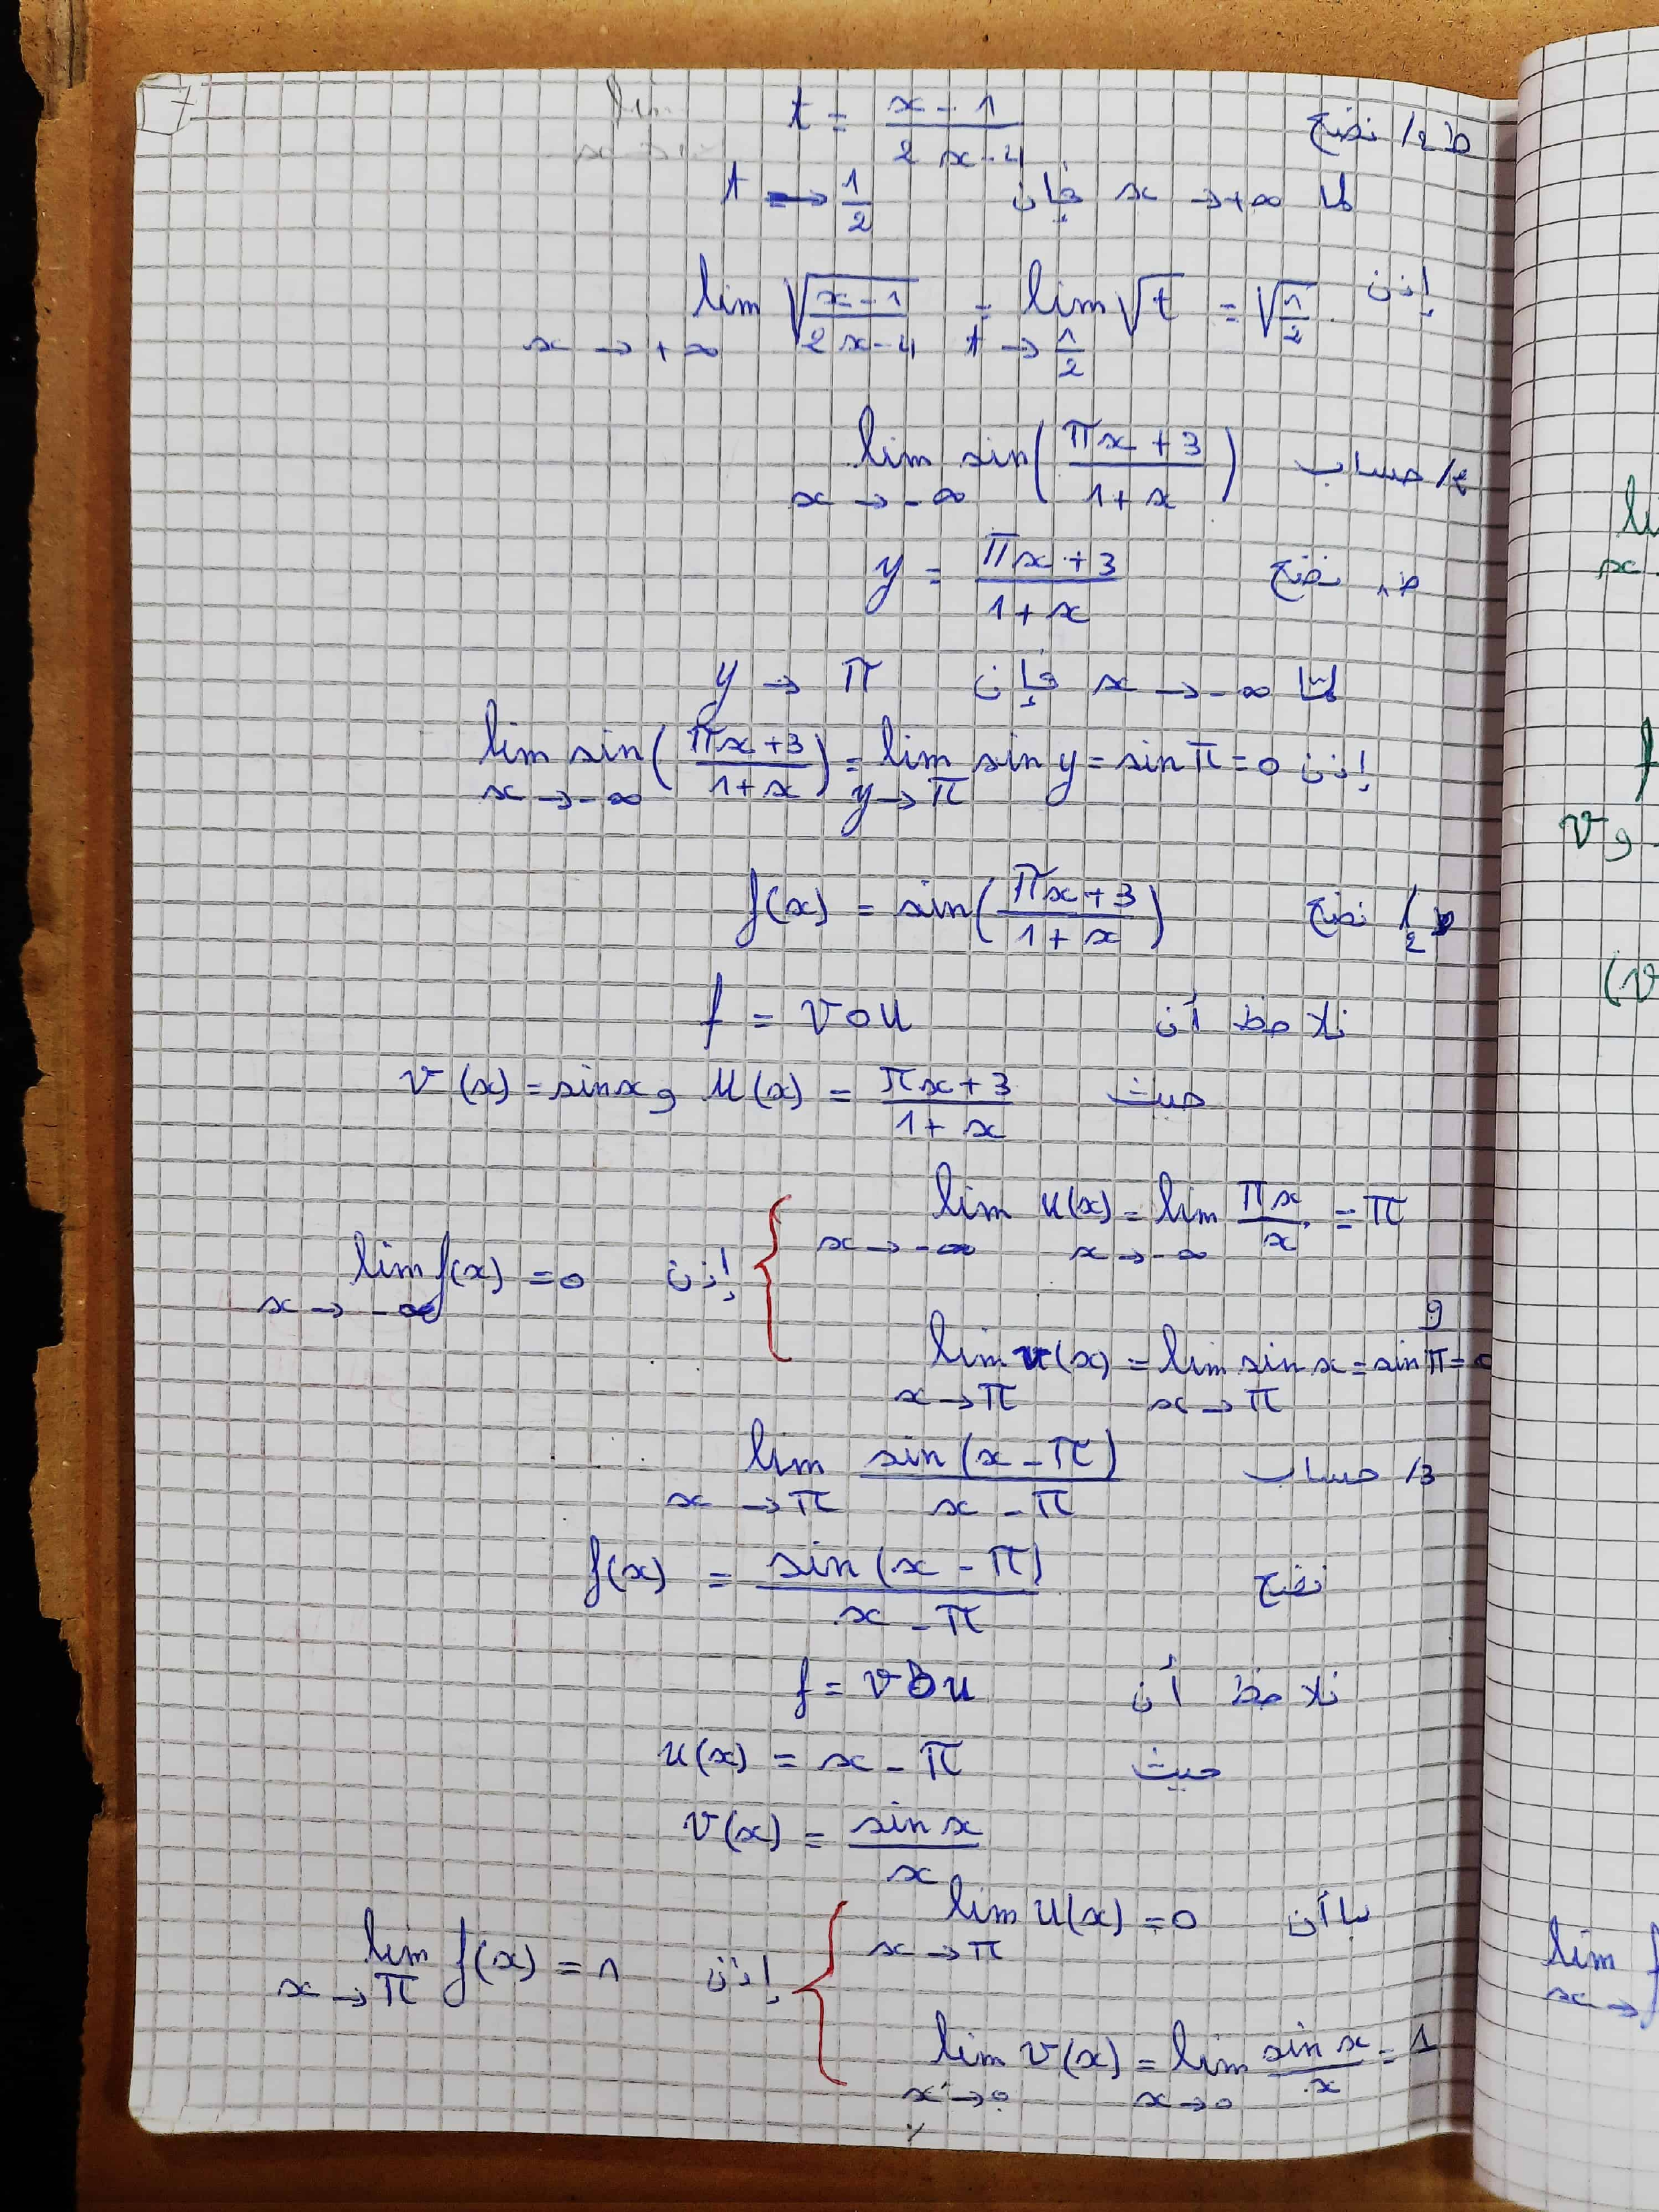 7
ط2/ نضع t = \frac{x-1}{2x-4}
لما x → +∞ فإن t → \frac{1}{2}
إذن \lim_{x → +∞} \sqrt{\frac{x-1}{2x-4}} = \lim_{t → \frac{1}{2}} \sqrt{t} = \sqrt{\frac{1}{2}}
2/ حساب \lim_{x → -∞} sin(\frac{πx+3}{1+x})
ط1 نضع y = \frac{πx+3}{1+x}
لما x → -∞ فإن y → π
إذن \lim_{x → -∞} sin(\frac{πx+3}{1+x}) = \lim_{y → π} sin y = sin π = 0
ط2/ نضع f(x) = sin(\frac{πx+3}{1+x})
نلاحظ أن f = v o u
حيث u(x) = \frac{πx+3}{1+x} و v(x) = sin x
\lim_{x → -∞} u(x) = \lim_{x → -∞} \frac{πx}{x} = π
و
\lim_{x → π} v(x) = \lim_{x → π} sin x = sin π = 0
إذن \lim_{x → -∞} f(x) = 0
3/ حساب \lim_{x → π} \frac{sin(x-π)}{x-π}
نضع f(x) = \frac{sin(x-π)}{x-π}
نلاحظ أن f = v o u
حيث u(x) = x - π
v(x) = \frac{sin x}{x}
بما أن \lim_{x → π} u(x) = 0
\lim_{x → 0} v(x) = \lim_{x → 0} \frac{sin x}{x} = 1
إذن \lim_{x → π} f(x) = 1